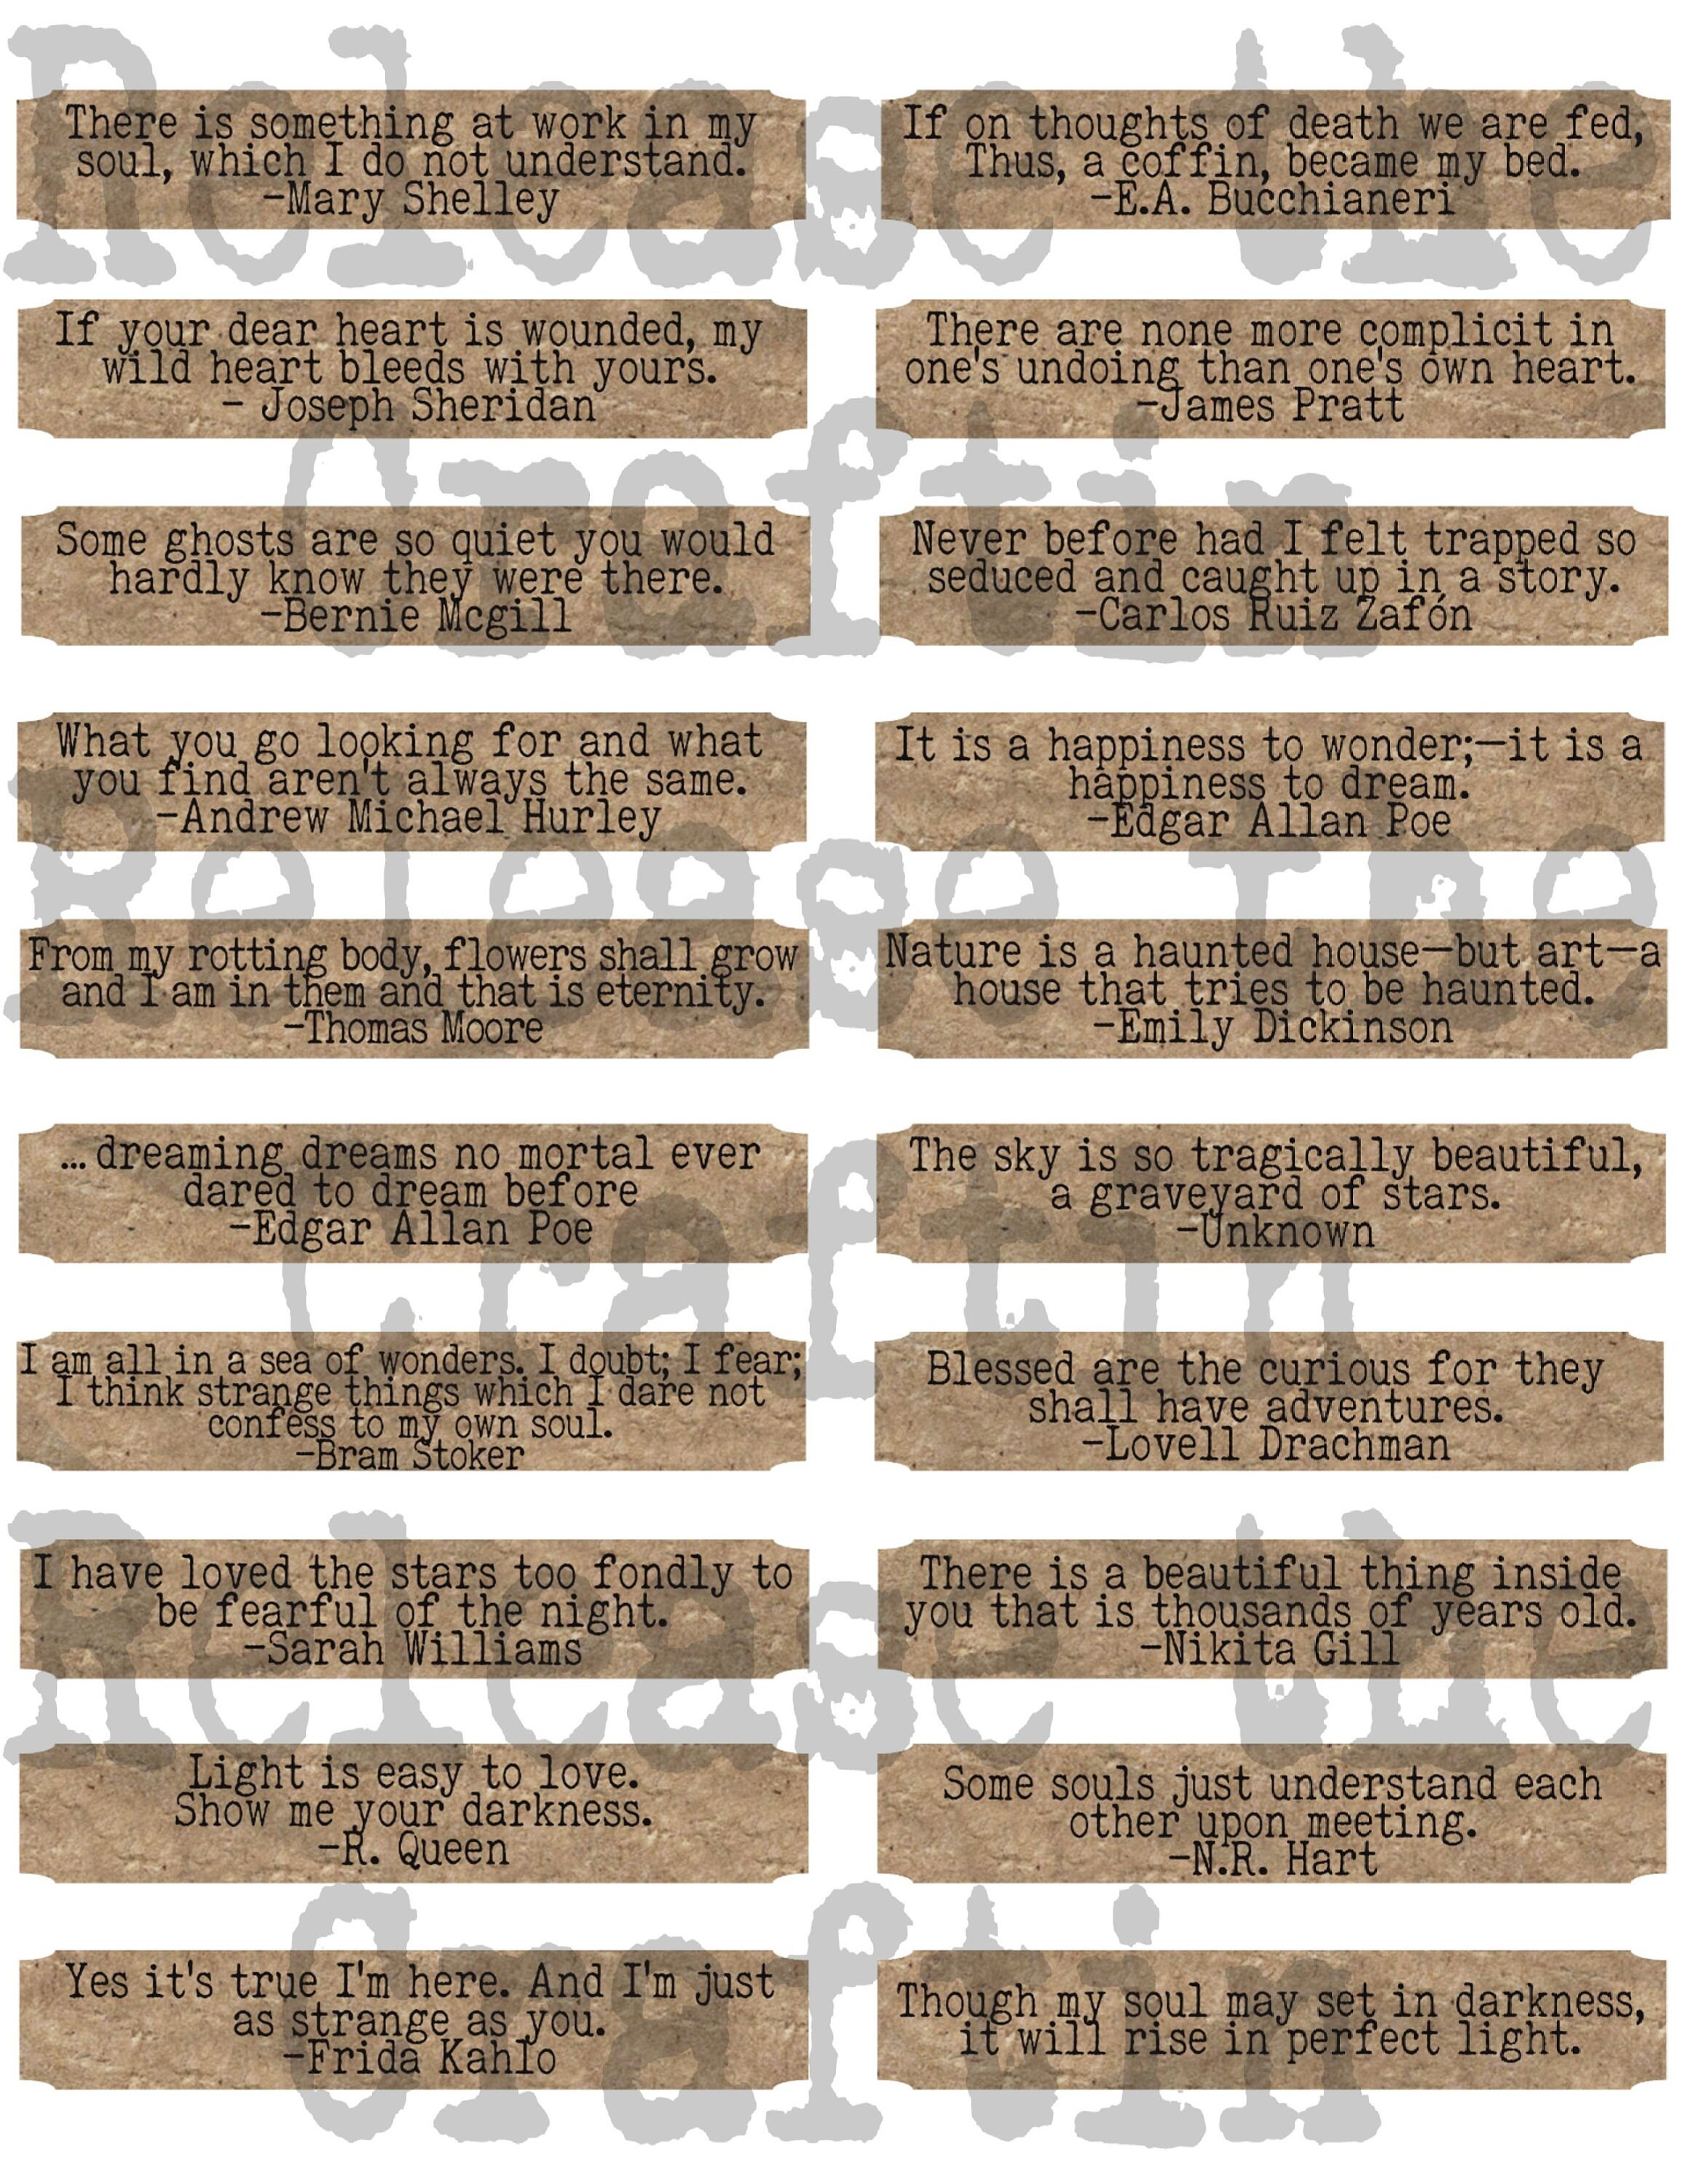 There is something at work in my
soul, which I do not understand.
-Mary Shelley
If on thoughts of death we are fed,
Thus, a coffin, became my bed.
-E.A. Bucchianeri
If your dear heart is wounded, my
wild heart bleeds with yours.
- Joseph Sheridan
There are none more complicit in
one's undoing than one's own heart.
-James Pratt
Some ghosts are so quiet you would
hardly know they were there.
-Bernie Mcgill
Never before had I felt trapped so
seduced and caught up in a story.
-Carlos Ruiz Zafón
What you go looking for and what
you find aren't always the same.
-Andrew Michael Hurley
It is a happiness to wonder;—it is a
happiness to dream.
-Edgar Allan Poe
From my rotting body, flowers shall grow
and I am in them and that is eternity.
-Thomas Moore
Nature is a haunted house—but art—a
house that tries to be haunted.
-Emily Dickinson
... dreaming dreams no mortal ever
dared to dream before
-Edgar Allan Poe
The sky is so tragically beautiful,
a graveyard of stars.
-Unknown
I am all in a sea of wonders. I doubt; I fear;
I think strange things which I dare not
confess to my own soul.
-Bram Stoker
Blessed are the curious for they
shall have adventures.
-Lovell Drachman
I have loved the stars too fondly to
be fearful of the night.
-Sarah Williams
There is a beautiful thing inside
you that is thousands of years old.
-Nikita Gill
Light is easy to love.
Show me your darkness.
-R. Queen
Some souls just understand each
other upon meeting.
-N.R. Hart
Yes it's true I'm here. And I'm just
as strange as you.
-Frida Kahlo
Though my soul may set in darkness,
it will rise in perfect light.
Release the
Craftin
Release the
Craftin
Release the
Craftin